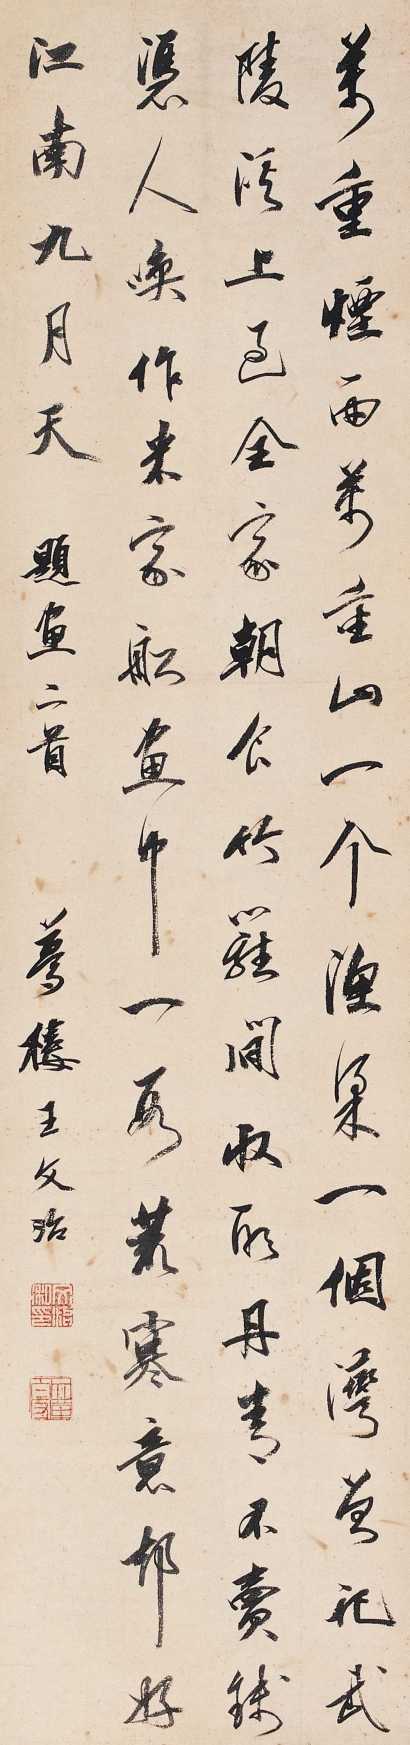 萬重煙雨萬重山一个漁梁一個灣曾記武
陵溪上過全家朝食竹籬間收取丹青不賣錢
憑人喚作米家船畫中一段荒寒意却好
江南九月天 題畫二首 夢樓王文治